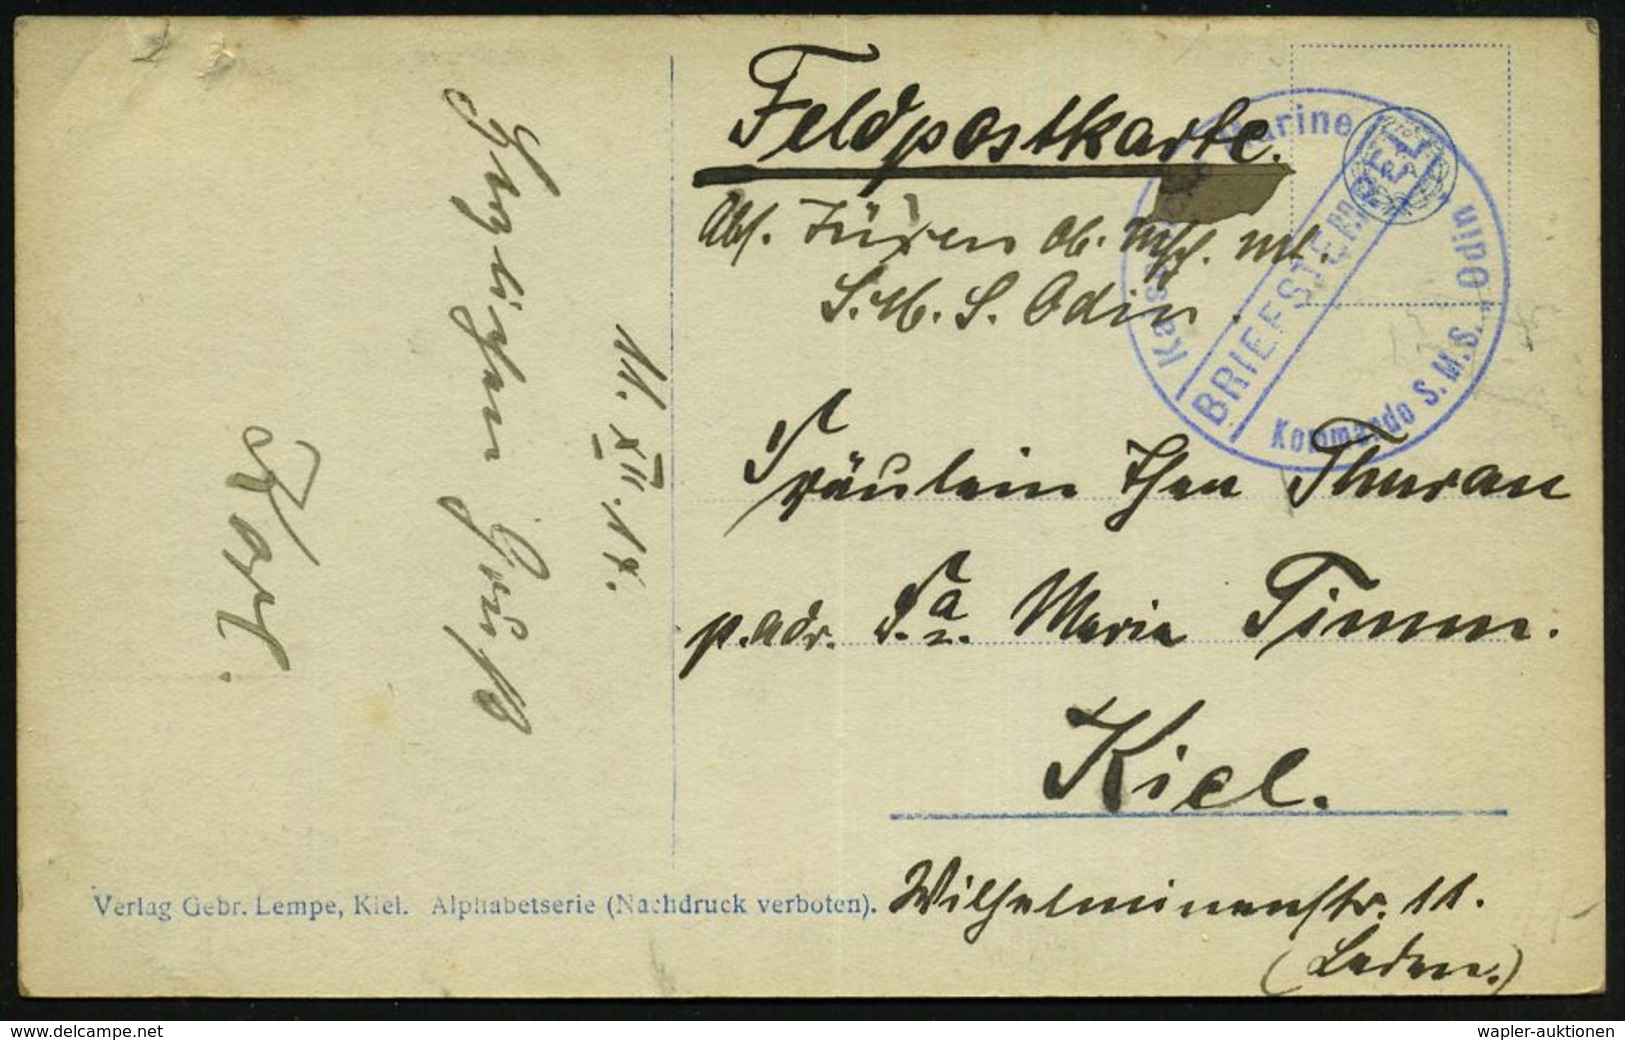 Feldpostkarte.
Abs. Jürsen Ob. Msch. Mt.
S.M.S. Odin.
Kaiserliche Marine
BRIEFSTEMPEL
Kommando S.M.S. "Odin
Fräulein Thea Thuran
p. adr. Fa. Maria Timm.
Kiel.
Wilhelminenstr. 11.
(Laden.)
11. XII. 17.
Herzlichen Gruß
Karl.
Verlag Gebr. Lempe, Kiel. Alphabetserie (Nachdruck verboten).
www.delcampe.net
wapler-auktionen